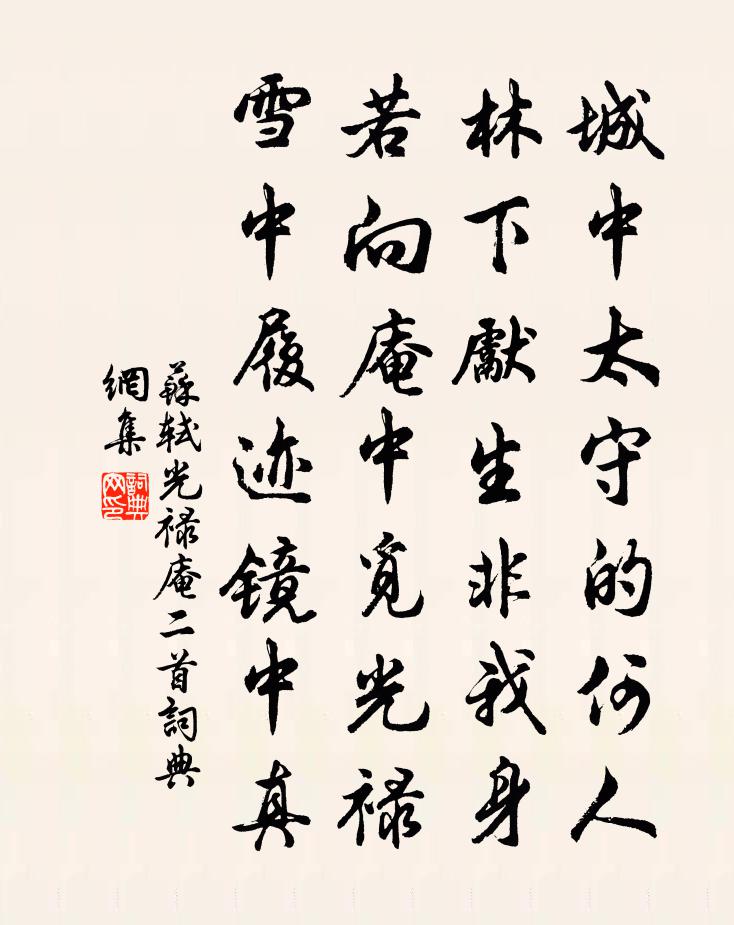 城中太守的何人
林下獻生非我身
若向庵中覓光禄
雪中履迹镜中真
蘇軾光禄庵二首詞典
網集
詞典
网印